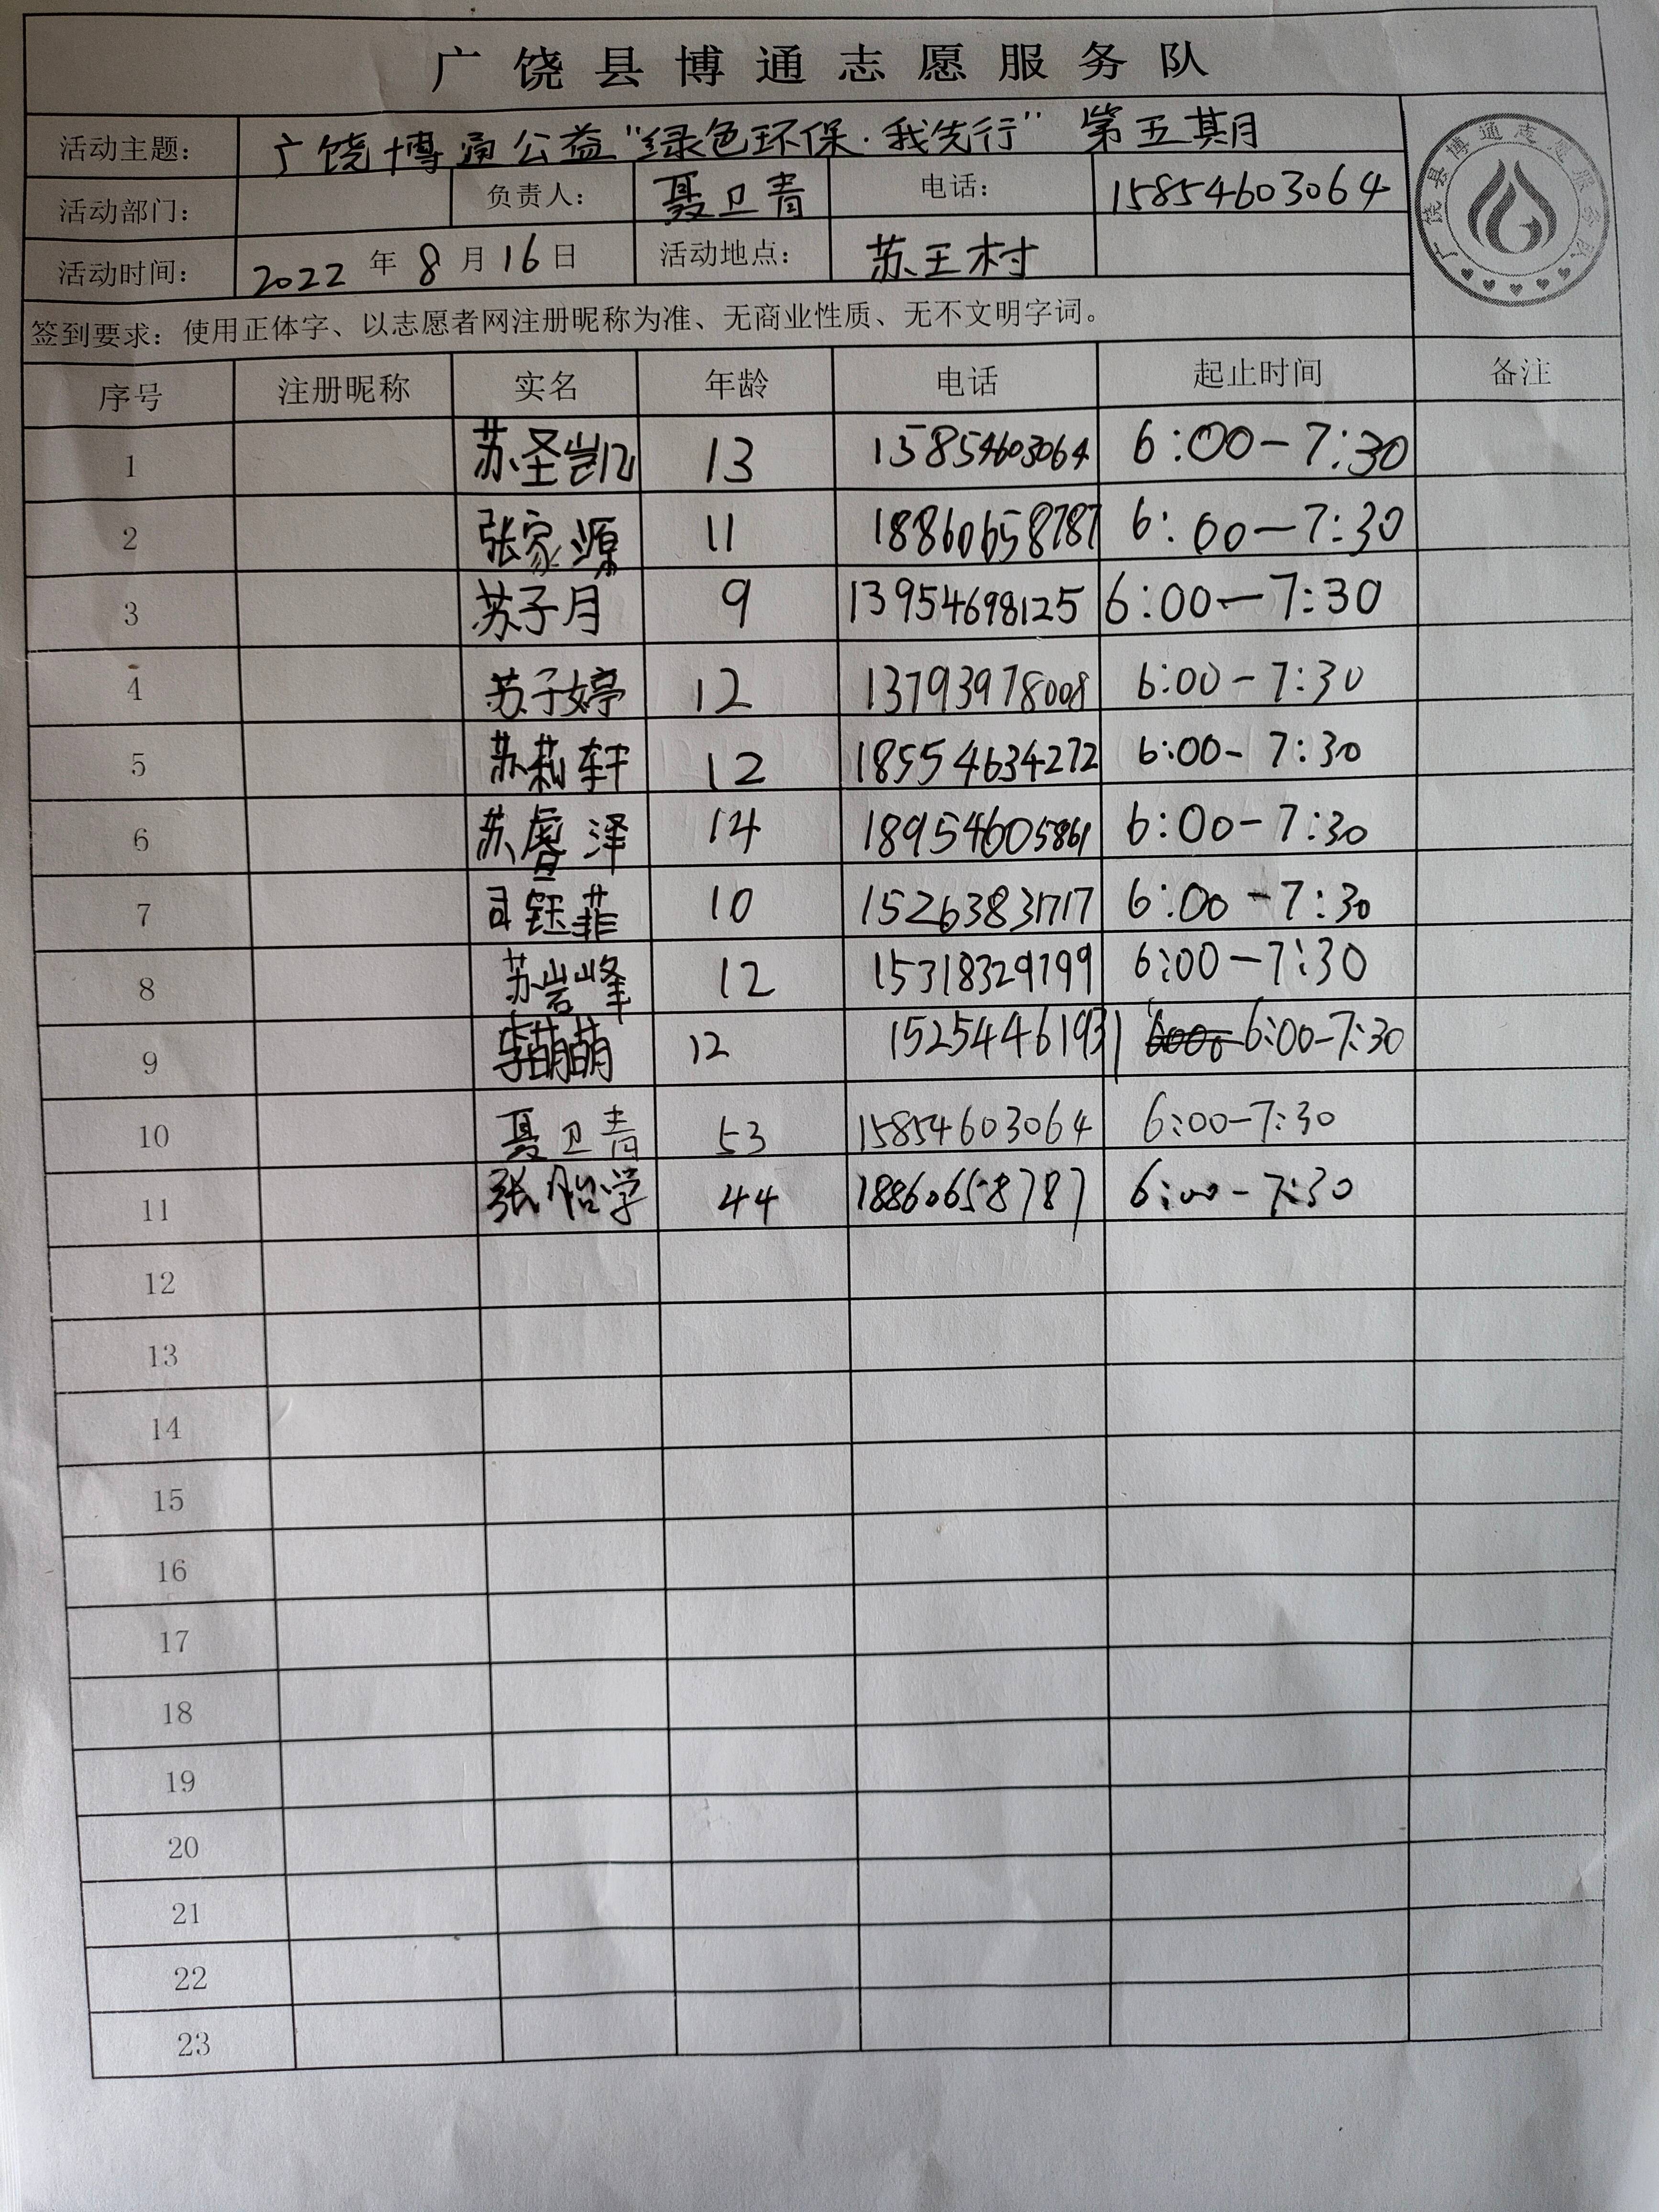 广饶县博通志愿服务队
活动主题： 广饶博通公益“绿色环保·我先行” 第五期
广饶县博通志愿服务队
活动部门： 负责人： 聂卫青 电话： 15854603064
活动时间： 2022年8月16日 活动地点： 苏王村
签到要求：使用正体字、以志愿者网注册昵称为准、无商业性质、无不文明字词。
序号 注册昵称 实名 年龄 电话 起止时间 备注
1 苏圣岂凡 13 15854603064 6:00-7:30
2 张家源 11 18860658787 6:00-7:30
3 苏子月 9 13954698125 6:00-7:30
4 苏子婷 12 13793978008 6:00-7:30
5 苏莉轩 12 18554634272 6:00-7:30
6 苏睿泽 14 18954605861 6:00-7:30
7 司钰菲 10 15263831717 6:00-7:30
8 苏岩峰 12 15318329799 6:00-7:30
9 李萌萌 12 15254461931 6:00-7:30
10 聂卫青 53 15854603064 6:00-7:30
11 张学 44 18860658787 6:00-7:30
12
13
14
15
16
17
18
19
20
21
22
23